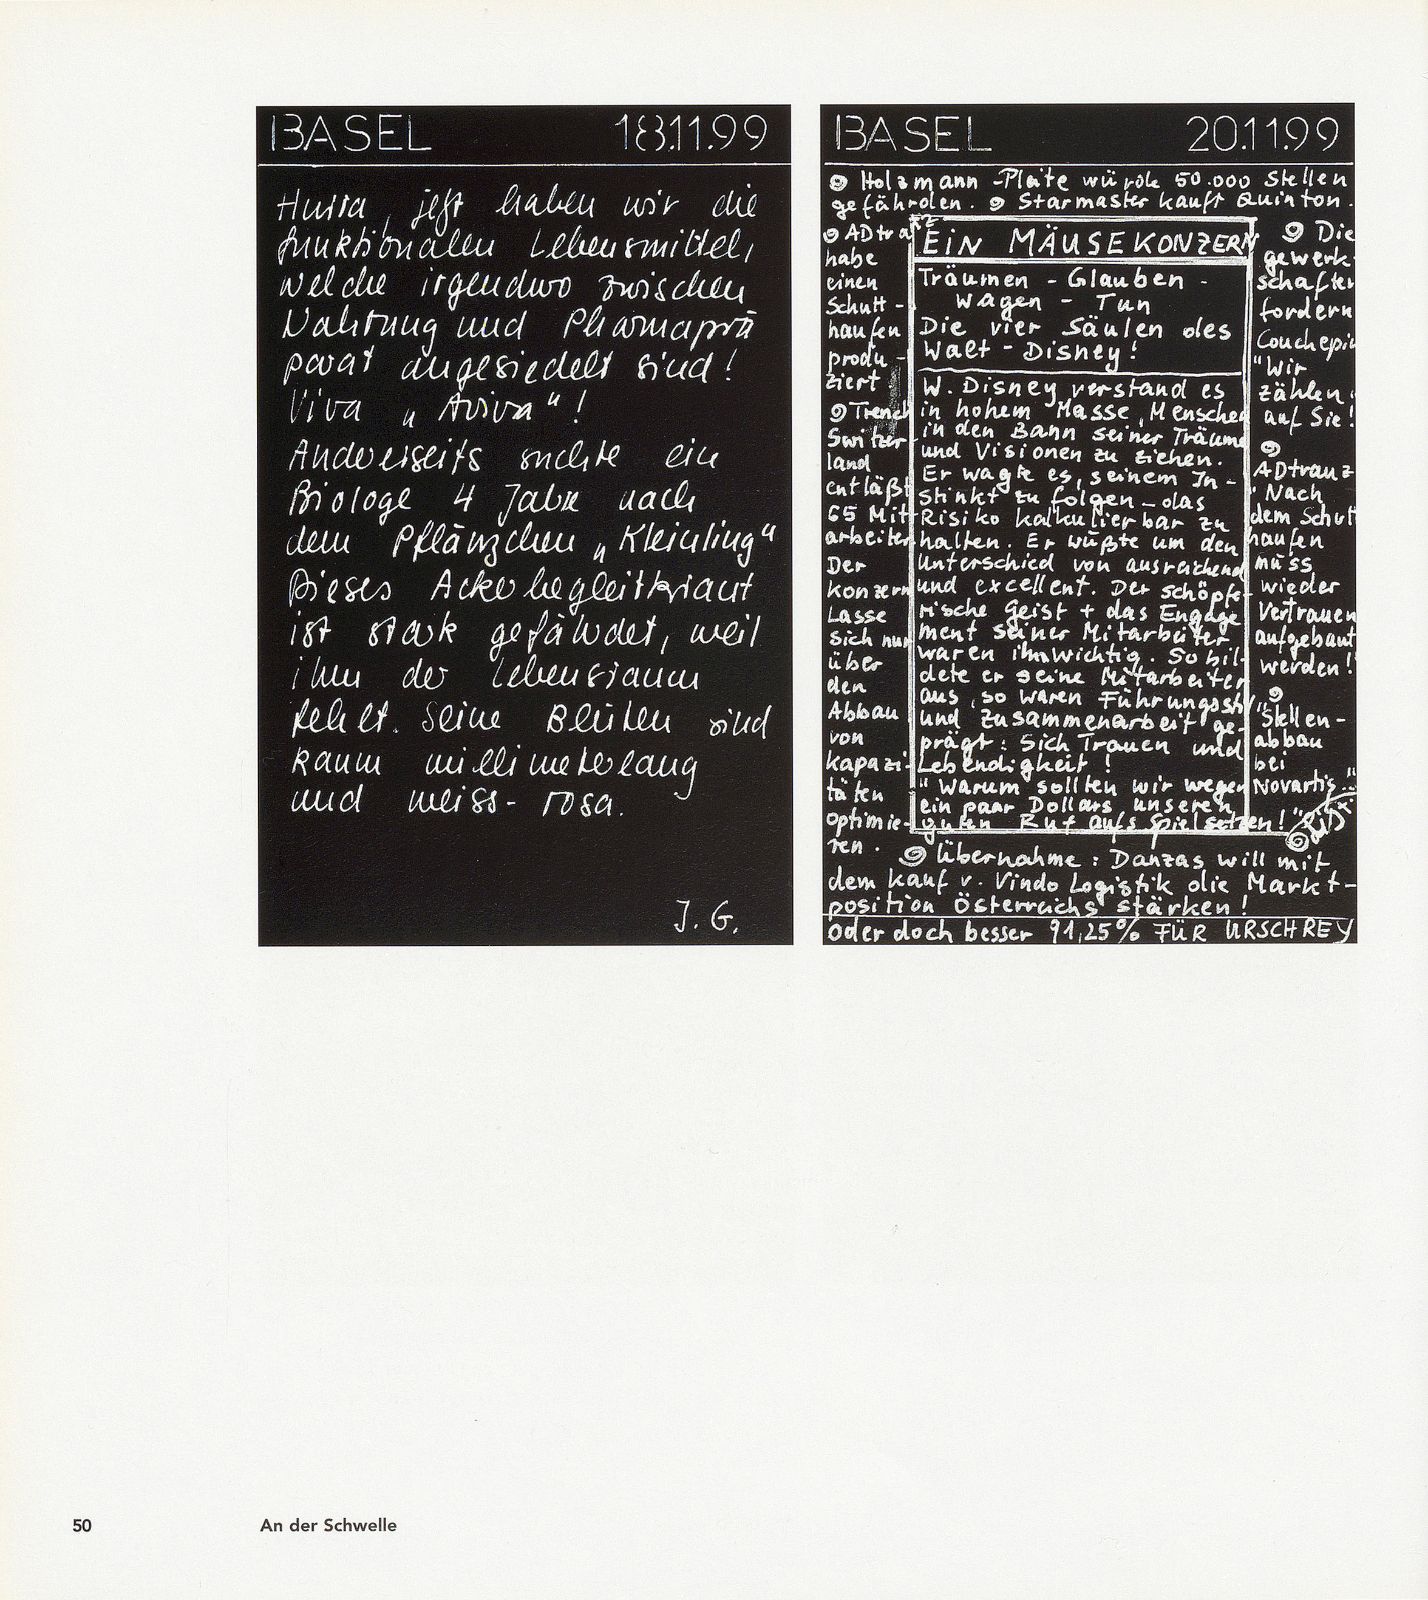 BASEL 18.11.99
Hurra, jetzt haben wir die
funktionalen Lebensmittel,
welche irgendwo zwischen
Nahrung und Pharmaprä
parat angesiedelt sind!
Viva „Aviva“!
Anderseits suchte ein
Biologe 4 Jahre nach
dem Pflänzchen „Kleinling“
Dieses Ackerbegleitkraut
ist stark gefährdet, weil
ihm der Lebensraum
fehlt. Seine Blüten sind
kaum millimeterlang
und weiss-rosa.
J. G.
BASEL 20.11.99
Holzmann-Pleite würde 50.000 Stellen
gefährden. Starmaster kauft Quinton.
ADtranz
habe
einen
Schutt-
haufen
produ-
ziert
Trench
Switzer-
land
entläßt
65 Mit-
arbeiter
Der
Konzern
Lasse
sich nur
über
den
Abbau
von
Kapazi-
täten
optimie-
ren.
EIN MÄUSEKONZERN
Träumen - Glauben -
Wagen - Tun
Die vier Säulen des
Walt-Disney!
W. Disney verstand es
in hohem Masse, Menschen
in den Bann seiner Träume
und Visionen zu ziehen.
Er wagte es, seinem In-
stinkt zu folgen - das
Risiko kalkulierbar zu
halten. Er wußte um den
Unterschied von ausreichend
und excellent. Der schöpfe-
rische Geist + das Engage
ment seiner Mitarbeiter
waren ihm wichtig. So bil-
dete er seine Mitarbeiter
aus, so waren Führungsstil
und Zusammenarbeit ge-
prägt: Sich Trauen und
Lebendigkeit!
"Warum sollten wir wegen
ein paar Dollars unseren
guten Ruf aufs Spiel setzen!"
Die
gewerk-
schaften
fordern
Couchepin
"Wir
zählen
auf Sie!
ADtranz
"Nach
dem Schutt
haufen
muss
wieder
Vertrauen
aufgebaut
werden!
"Stellen-
abbau
bei
Novartis..."
Übernahme: Danzas will mit
dem Kauf v. Vindo Logistik die Markt-
position Österreichs stärken!
Oder doch besser 91,25% FÜR URSCHREY
50 An der Schwelle